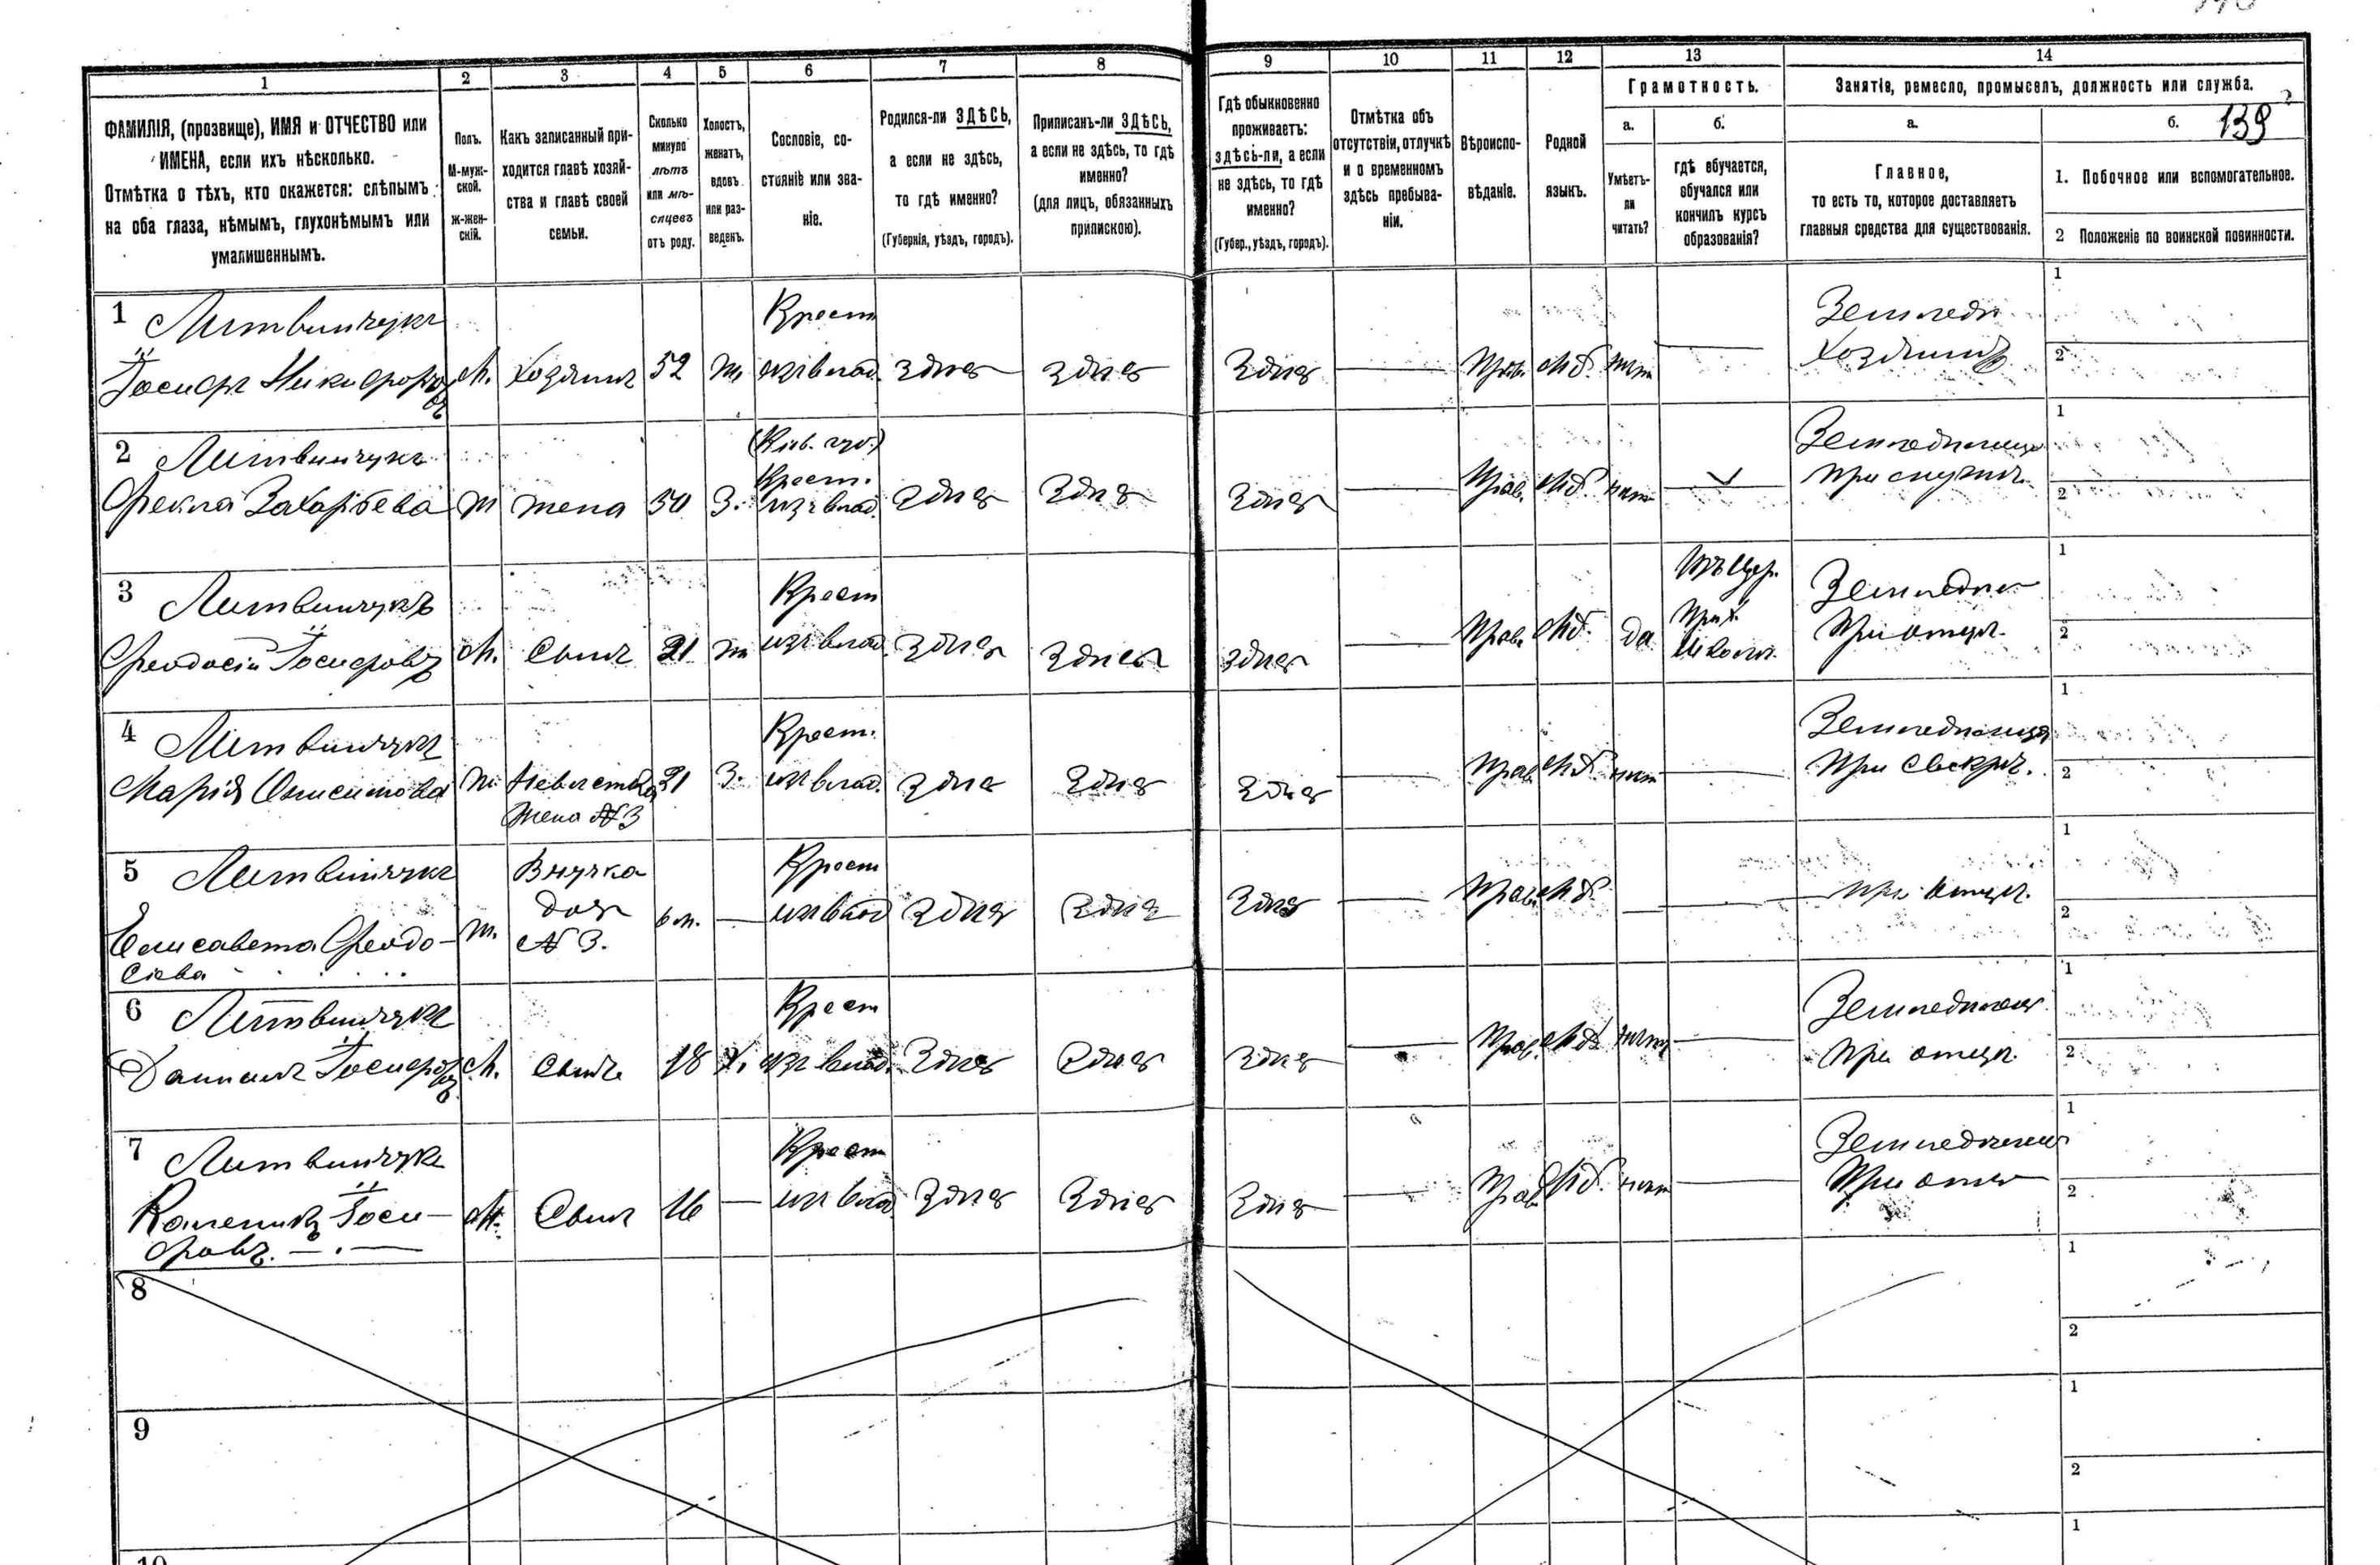 1 2 3 4 5 6 7 8 9 10 11 12 13 14
ФАМИЛІЯ, (прозвище), ИМЯ и ОТЧЕСТВО или
ИМЕНА, если ихъ нѣсколько.
Отмѣтка о тѣхъ, кто окажется: слѣпымъ
на оба глаза, нѣмымъ, глухонѣмымъ или
умалишеннымъ.
Полъ.
М-муж-
ской.
ж-жен-
скій.
Какъ записанный при-
ходится главѣ хозяй-
ства и главѣ своей
семьи.
Сколько
минуло
лѣтъ
или мѣ-
сяцевъ
отъ роду.
Холостъ,
женатъ,
вдовъ
или раз-
веденъ.
Сословіе, со-
стояніе или зва-
ніе.
Родился-ли ЗДѢСЬ,
а если не здѣсь,
то гдѣ именно?
(Губернія, уѣздъ, городъ).
Приписанъ-ли ЗДѢСЬ,
а если не здѣсь, то гдѣ
именно?
(для лицъ, обязанныхъ
припискою).
Гдѣ обыкновенно
проживаетъ:
здѣсь-ли, а если
не здѣсь, то гдѣ
именно?
(Губер., уѣздъ, городъ).
Отмѣтка объ
отсутствіи, отлучкѣ
и о временномъ
здѣсь пребыва-
ніи.
Вѣроиспо-
вѣданіе.
Родной
языкъ.
Грамотность.
а.
Умѣетъ-
ли
читать?
б.
гдѣ обучается,
обучался или
кончилъ курсъ
образованія?
Занятіе, ремесло, промыселъ, должность или служба.
а.
Главное,
то есть то, которое доставляетъ
главныя средства для существованія.
б. 139
1. Побочное или вспомогательное.
2 Положеніе по воинской повинности.
1 Литвинчукъ
Іосифъ Никифоровъ
М. хозяинъ 52 ж.
Крест
изъ влад.
здѣсь здѣсь здѣсь
Прав. Мд. нѣтъ
Земледѣ
хозяинъ
1
2
2 Литвинчукъ
Фекла Захарьева
ж жена 50 З.
(Кіев. губ.)
Крест.
изъ влад.
здѣсь здѣсь здѣсь
Прав. Мд. нѣтъ
при мужѣ
1
2
3 Литвинчукъ
Феодосій Іосифовъ
М. сынъ 21 ж
Крест
изъ влад.
здѣсь здѣсь здѣсь
Прав. Мд. да
Въ Цер.
Прих.
Школѣ.
Земледѣ
при отцѣ.
1
2
4 Литвинчукъ
Марія Онисимова
ж. Невѣстка
жена №3
21 З.
Крест.
изъ влад.
здѣсь здѣсь здѣсь
Прав. Мд. нѣтъ
при свекрѣ.
1
2
5 Литвинчукъ
Елисавета Феодо-
сіева
ж.
Внучка
дочь
№ 3.
6 м.
Крест
изъ влад
здѣсь здѣсь здѣсь
Прав. Мд.
при отцѣ.
1
2
6 Литвинчукъ
Даніилъ Іосифовъ
М. сынъ 18 х.
Крест
изъ влад.
здѣсь здѣсь здѣсь
Прав. Мд. нѣтъ
при отцѣ
1
2
7 Литвинчукъ
Каленикъ Іоси-
фовъ.
М. Сынъ 16
Крест
изъ влад.
здѣсь здѣсь здѣсь
Прав. Мд. нѣтъ
при отцѣ
1
2
8
1
2
9
1
2
10
1